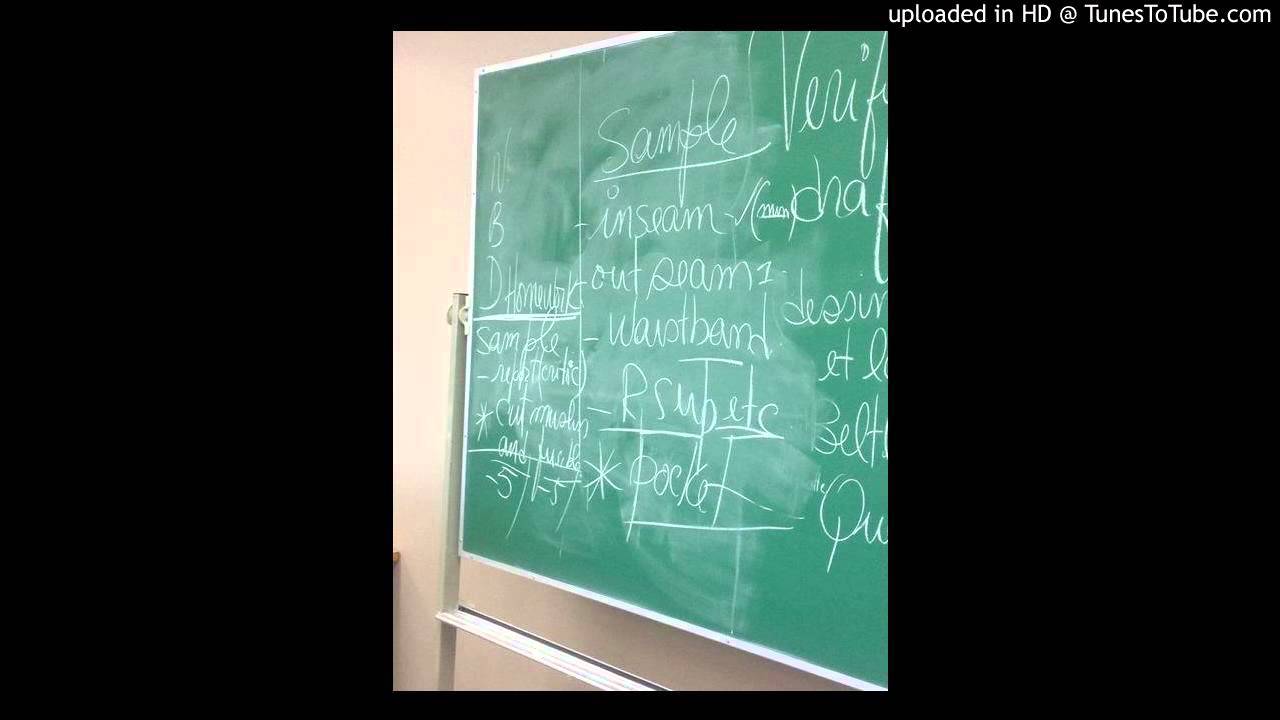 uploaded in HD @ TunesToTube.com
N
B
D Homework
sample
- report(critic)
* cut muslin
and fusible
-5 / -5 /
Sample
- inseam - √
- outseam
- waistband
- R sub etc
* pocket
Verif
draf
dessin
et l
Qu